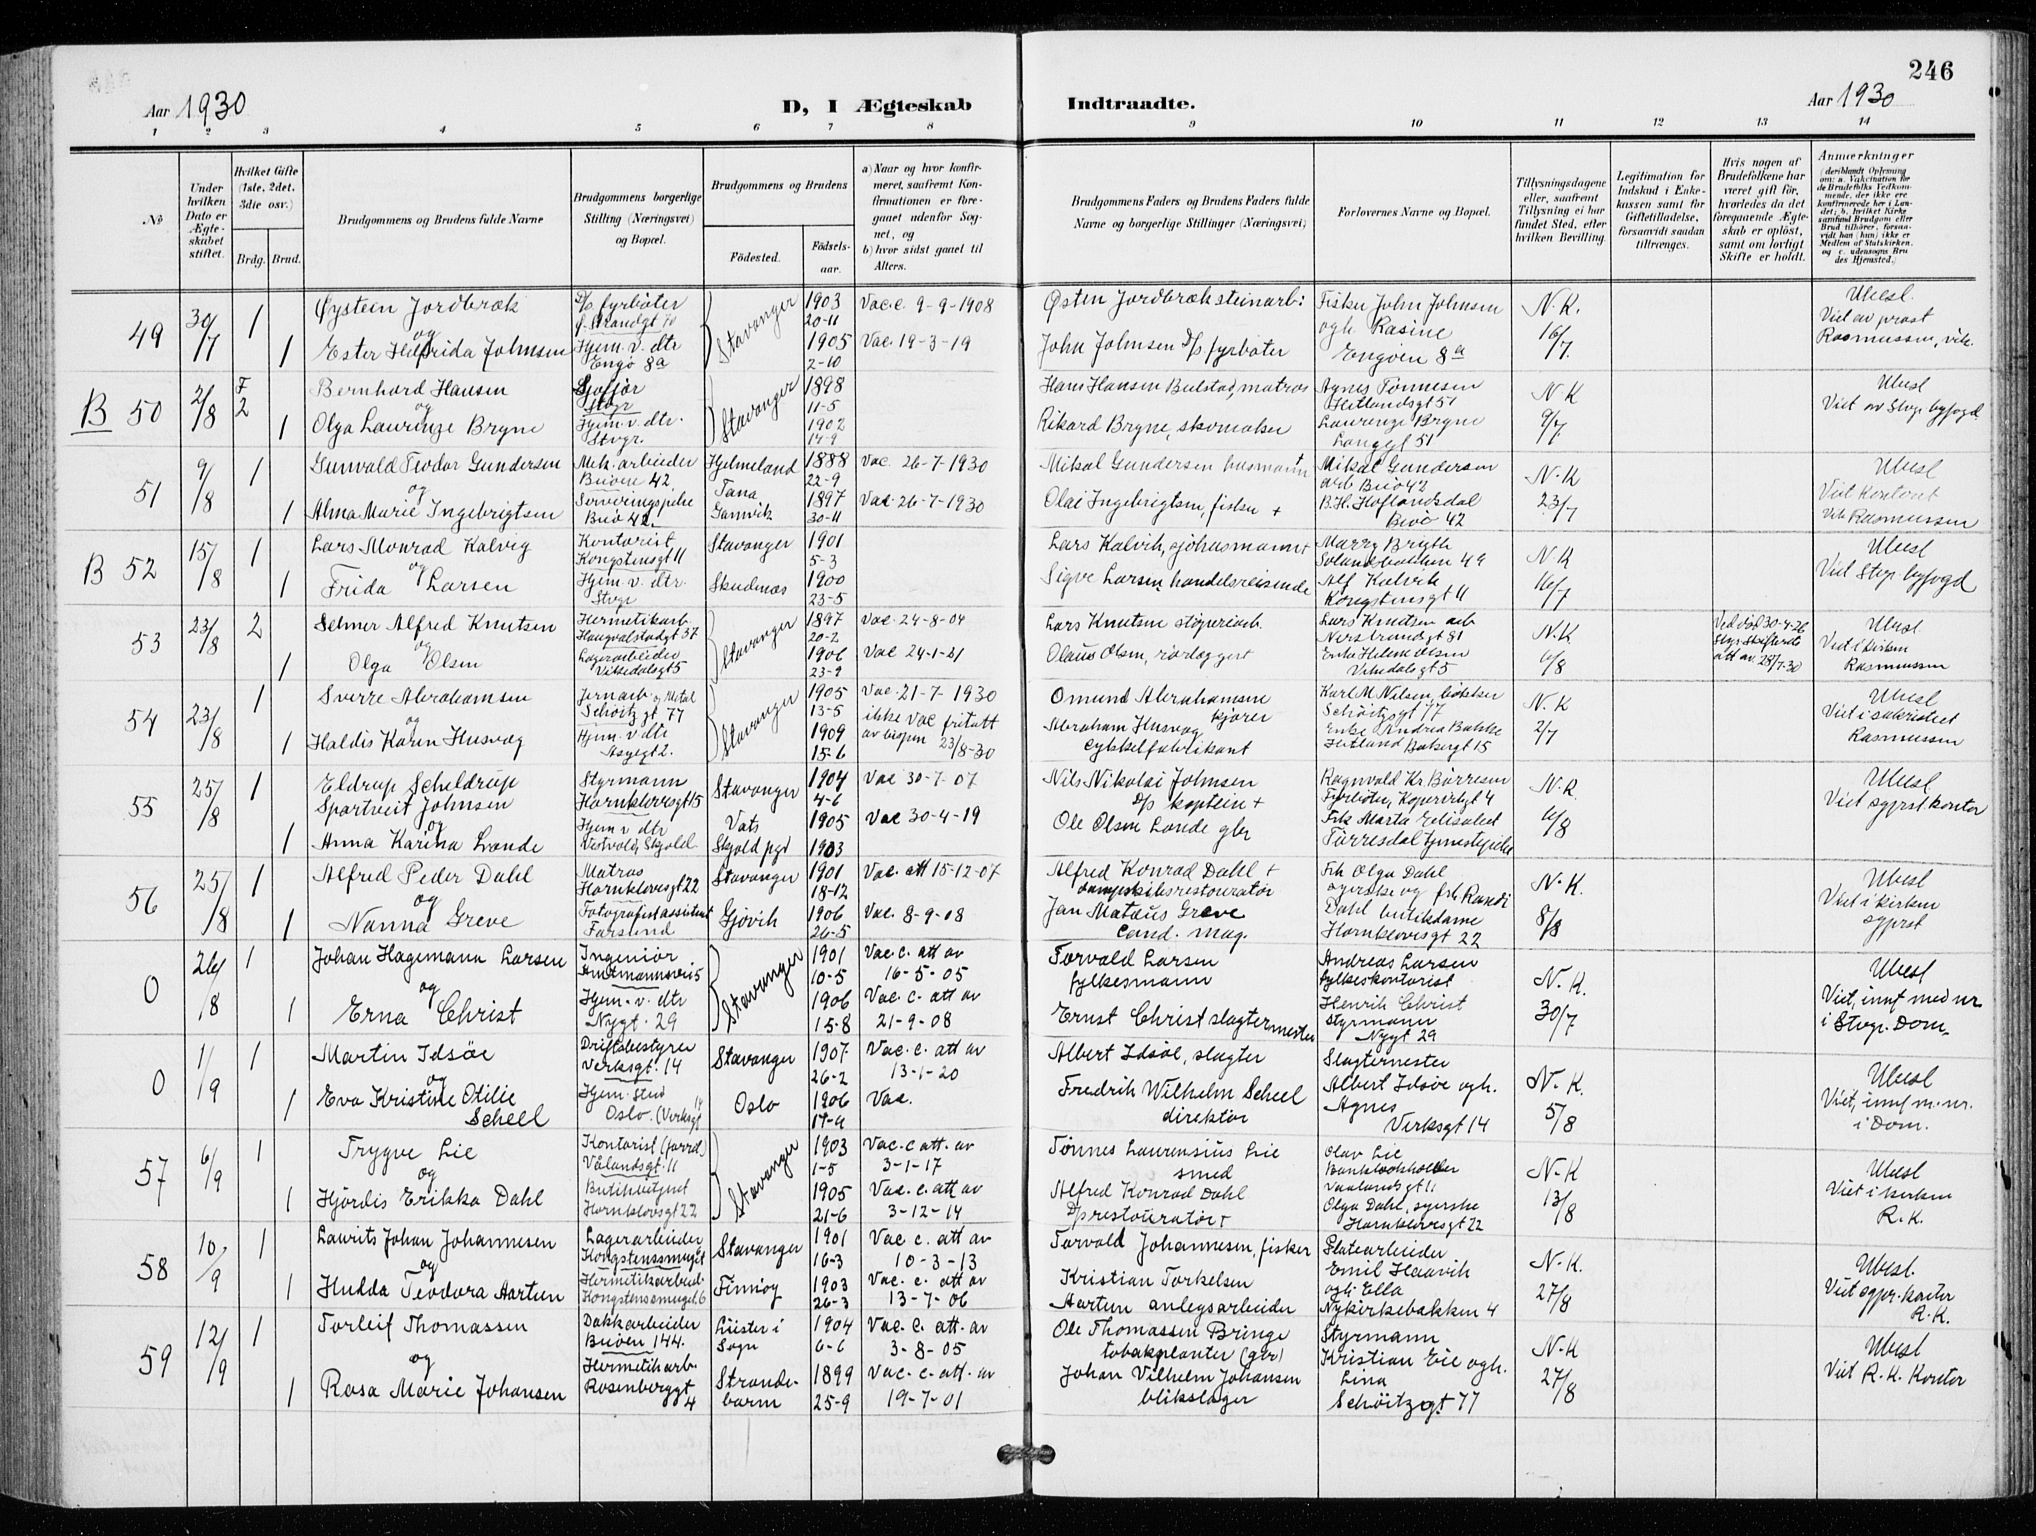 246
Aar 1930
D, I Ægteskab
Indtraadte.
Aar 1930
1 2 3 4 5 6 7 8 9 10 11 12 13 14
No
Under hvilken Dato er Ægteskabet stiftet.
Hvilket Gifte (1ste, 2det, 3die osv.)
Brdg. Brud.
Brudgommens og Brudens fulde Navne
Brudgommens borgerlige Stilling (Næringsvei) og Bopæl.
Brudgommens og Brudens
Födested.
Födselsaar.
a) Naar og hvor konfirmeret, saafremt Konfirmationen er foregaaet udenfor Sognet, og
b) hvor sidst gaaet til Alters.
Brudgommens Faders og Brudens Faders fulde Navne og borgerlige Stillinger (Næringsvei)
Forlovernes Navne og Bopæl.
Tillysningsdagene eller, saafremt Tillysning ei har fundet Sted, efter hvilken Bevilling.
Legitimation for Indskud i Enkekassen samt for Giftetilladelse, forsaavidt saadan tiltrænges.
Hvis nogen af Brudefolkene har været gift för, hvorledes da det foregaaende Ægteskab er oplöst, samt om lovligt Skifte er holdt.
Anmærkninger
49 30/7 1 Øystein Jordbræk D/s fyrbøter Ø. Strandgt 70 Stavanger 1903 20-11 Vac.c. 9-9-1908 Østen Jordbræk steinarb: Fisker John Johnsen N.K. Ubesl.
og
1 Ester Helfrida Johnsen Hjem.v. dtr Engø 8a 1905 2-10 Vac. 19-3-19 John Johnsen D/s fyrbøter ogh Rasine Engøen 8a 16/7. Viet av prost Rasmussen, vik.
B 50 2/8 F 2 Bernhard Hansen Sjøfør Stvgr Stavanger 1898 11-5 Hans Hansen Bulstad, matros Agnes Tønnesen Hetlandsgt 51 N K Ubesl
og
1 Olga Lauringe Bryne Hjem.v. dtr. Stvgr. 1902 14-9 Rikard Bryne, skomaker Lauringe Bryne Langgt 51 9/7. Viet av Stvgr byfogd
51 9/8 1 Gunvald Teodor Gundersen Mek. arbeider Buøen 42 Hjelmeland 1888 22-9 Vac. 26-7-1930 Mikal Gundersen husmann + Mikal Gundersen arb Buø 42 N.K Ubesl
og
1 Alma Marie Ingebrigtsen Serveringspike Buø 42. Tana Gamvik 1897 30-11 Vac 26-7-1930 Olai Ingebrigtsen, fisker + B.H. Hoflandsdal Buø 42 23/7 Viet kontoret Vik Rasmussen
B 52 15/8 1 Lars Monrad Kalvig Kontorist Kongstensgt 11 Stavanger 1901 5-3 Lars Kalvik, sjøhusmann + Marry Brigth N K Ubesl
og
1 Frida Larsen Hjem.v. dtr. Stvgr Skudenæs 1900 23-5 Sigve Larsen handelsreisende Alf Kalvik Kongstensgt 11 16/7 Viet Stvgr byfogd
53 23/8 2 Selmer Alfred Knutsen Hermetikarb Haugvalstadgt 37 Stavanger 1897 20-2 Vac. 24-8-04 Lars Knutsen støperiarb. Lars Knutsen arb Nerstrandgt 81 N.K Ved død 30-4-26 Ubesl.
og
1 Olga Olsen Lagerarbeider Vikedalsgt 5 1906 23-9 Vac 24-1-21 Olaus Olsen, rørlegger + Enke Helene Olsen Vikedalsgt 5 6/8 att av. 28/7.30 Viet i kirken Rasmussen
54 23/8 1 Sverre Abrahamsen Jernarb. og Metal Schøitzgt 77 Stavanger 1905 13-5 Vac. 21-7-1930 Omund Abrahamsen kjører Karl M Nilsen, Schøitzgt 77 N.K Ubesl
og
1 Haldis Karin Husvæg Hjem.v dtr 1909 15-6 ikke vac fritatt av bispen 23/8-30 Abraham Husvæg cykkelfabrikant Enke Andrea Bakke Hetland Bakergt 15 2/7 Viet i sakristiet Rasmussen
55 25/8 1 Eldrup Scheldrup Sportveit Johnsen Styrmann Hornklovesgt 15 Stavanger 1904 4-6 Vac 30-7-07 Nils Nikolai Johnsen D/s kaptein + Ragnvald Kr. Børresen N.K. Ubesl
og
1 Anna Karina Lande Hjem v dtr Skjold Vats Skjold pgd 1905 1903 Vac 30-4-19 Ole Olsen Lande gbr Frk Marta Elisabet Tørresdal tjenestepike 6/8 Viet sgprst kontor
56 25/8 1 Alfred Peder Dahl Matros Hornklovesgt 22 Stavanger 1901 18-12 Vac. att 15-12-07 Alfred Konrad Dahl + dampskibsrestauratør Frk Olga Dahl syerske og frk Randi N.K. Ubesl
og
1 Nanna Greve Fotografiassistent Farsund Gjøvik 1906 26-5 Vac. 8-9-08 Jan Mataus Greve Cand. mag. Dahl butikdame Hornklovesgt 22 8/8 Viet i kirken sgprst
0 26/8 1 Johan Hagemann Larsen Ingeniør Amtmannsvei 5 Stavanger 1901 10-5 Vac.c. att av 16-5-05 Torvald Larsen fylkesmann Andreas Larsen fylkeskontorist N.K. Ubesl
og
1 Erna Christ Hjem.v. dtr Nygt. 29 1906 15-8 Vac.c. att av 21-9-08 Ernst Christ slagtermester Henrik Christ styrmann Nygt 29 30/7 Viet, innf med nr i Stvgr. Dom.
0 1/9 1 Martin Idsøe Driftsbestyrer Verksgt. 14 Stavanger 1907 26-2 Vac.c. att av 13-1-20 Albert Idsøe, slagter Slagtermester N.K. Ubesl
og
1 Eva Kristine Otilie Scheel Hjem. sted Oslo. (Verksgt 14 Oslo 1906 17-9 Vac. Fredrik Wilhelm Scheel direktør Albert Idsøe ogh. Agnes Verksgt 14 5/8 Viet, innf m. nr. i Dom.
57 6/9 1 Trygve Lie Kontorist (forrd.) Vålandsgt. 11 Stavanger 1903 1-5 Vac.c att. av 3-1-17 Tønnes Laurensius Lie smed Olav Lie Bankbokholder Vaalandsgt 11 N.K Ubesl
og
1 Hjørdis Erikka Dahl Butikbetjent Hornklovsgt 22 1905 21-6 Vac.c. att av 3-12-14 Alfred Konrad Dahl D/s restauratør + Olga Dahl, syerske Hornklovesgt 22 13/8 Viet i kirken R.K.
58 10/9 1 Laurits Johan Johannesen Lagerarbeider Kongstenssmuget Stavanger 1901 16-3 Vac c. att av 10-3-13 Torvald Johannesen, fisker Slatearbeider N.K. Ubesl.
og
1 Hulda Teodora Aartun Hermetikarbeid. Kongstenssmuget. 6 Finnøy 1903 26-3 Vac. c. att av 13-7-06 Kristian Torkelsen Aartun anlegsarbeider Emil Haavik ogh. Ella Nykirkebakken 4 27/8 Viet sgpr. kontor R.K.
59 12/9 1 Torleif Thomassen Dokkarbeider Buøen 144. Luster i Sogn 1904 6-6 Vac. c. att. av 3-8-05 Ole Thomassen Bringe tobakplanter (gbr) Styrmann N.K Ubesl
og
1 Rosa Marie Johansen Hermetikarb. Rosenberggt 4 Strandebarm 1899 25-9 Vac.c. att. av 19-7-01 Johan Vilhelm Johansen blikslager Kristian Eie ogh. Lina Schøitzgt 77 27/8 Viet R.K. Kontor